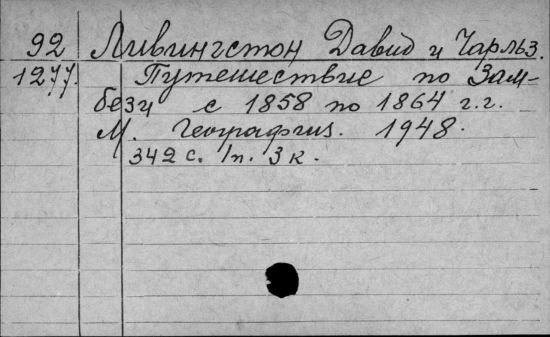 92 Ливингстон Давид и Чарльз.
1277. Путешествие по Зам-
бези с 1858 по 1864 г.г.
М. Географгиз. 1948.
342 с. 1 п. 3 к.